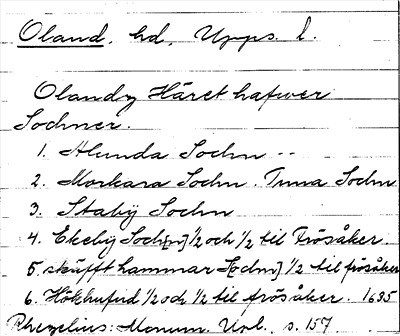 Oland, hd, Upps. l.
Olandz Häret hafwer
Sochner.
1. Alunda Sochn --
2. Morkara Sochn. Tuna Sochn
3. Stabÿ Sochn
4. Ekebÿ Soch[n] 1/2 och 1/2 til Frösåker.
5. skäfft hammar So[chn] 1/2 til frösåker
6. Hökhufud 1/2 och 1/2 til frösåker. 1635
Rhezelius: Monum. Upl., s. 157.